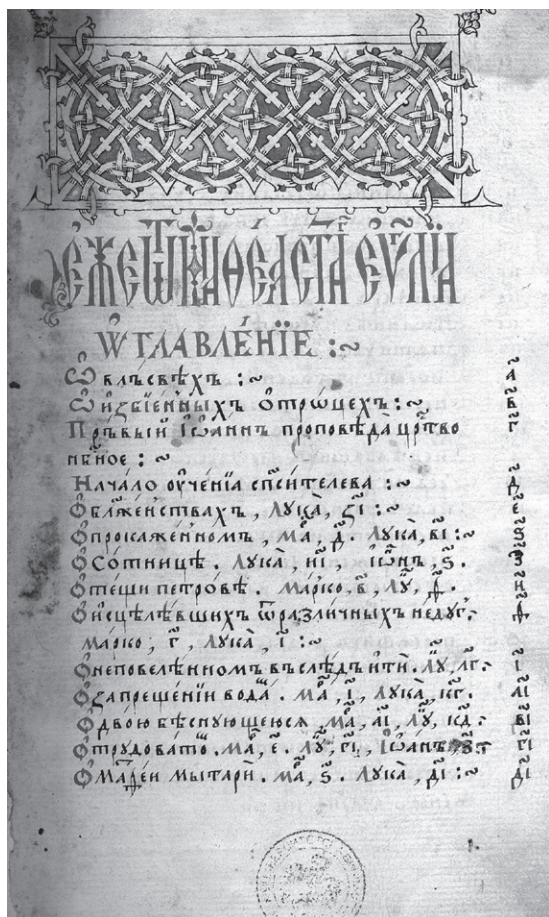 Е҆́же ѿ маѳеа ст҃а́г еѵⷢ҇лїа
Ѡ҆ главле́нїе :~
Ѡ҆ влъсвѣ́хъ :~ а҃
Ѡ҆ и҆збїе́нныхъ ѻ҆трѡцехъ :~ в҃
Пръвый і҆ѡ҆а́ннъ проповѣ́да црⷭ҇тво г҃
нбⷭ҇ное :~
Начало оу҆че́нїа сп҃си́телева :~ д҃
Ѻ҆ бл҃же́нствахъ , лука̀ , з҃і :~ е҃
Ѻ҆ прокаже́нномъ , ма́ , д҃ . лука̀ , в҃і :~ ѕ҃
Ѻ҆ со́тницѣ . лука̀ , н҃і , і҆ѡ҆нъ , ѕ҃ . з҃
Ѻ҆ те́щи петро́вѣ . ма́рко , в҃ , лꙋ , ѳ҃ . н҃
Ѻ҆ и҆сцѣлѣ́вшихъ ѿ разли́чныхъ недꙋ́г . ѳ҃
марко , г҃ , лука̀ , і҃ :~
Ѻ҆ неповелѣ́нномъ въслѣ́дъ и҆ти́ . лꙋ , л҃г :~ і҃
Ѻ҆ запреще́нїи вода́м . ма́ , і҃ , лука̀ , к҃г . а҃і
Ѻ҆ двою̀ бѣсную́щеюся , ма́ , а҃і , лꙋ , к҃д :~ в҃і
Ѻ҆ трꙋдова́тѡ . ма́ , е҃ . лꙋ , г҃і , і҆ѡ҆анъ , з҃ :~ г҃і
Ѻ҆ маѳе́и мытарѝ . ма́ , ѕ҃ . лука̀ , д҃і :~ д҃і